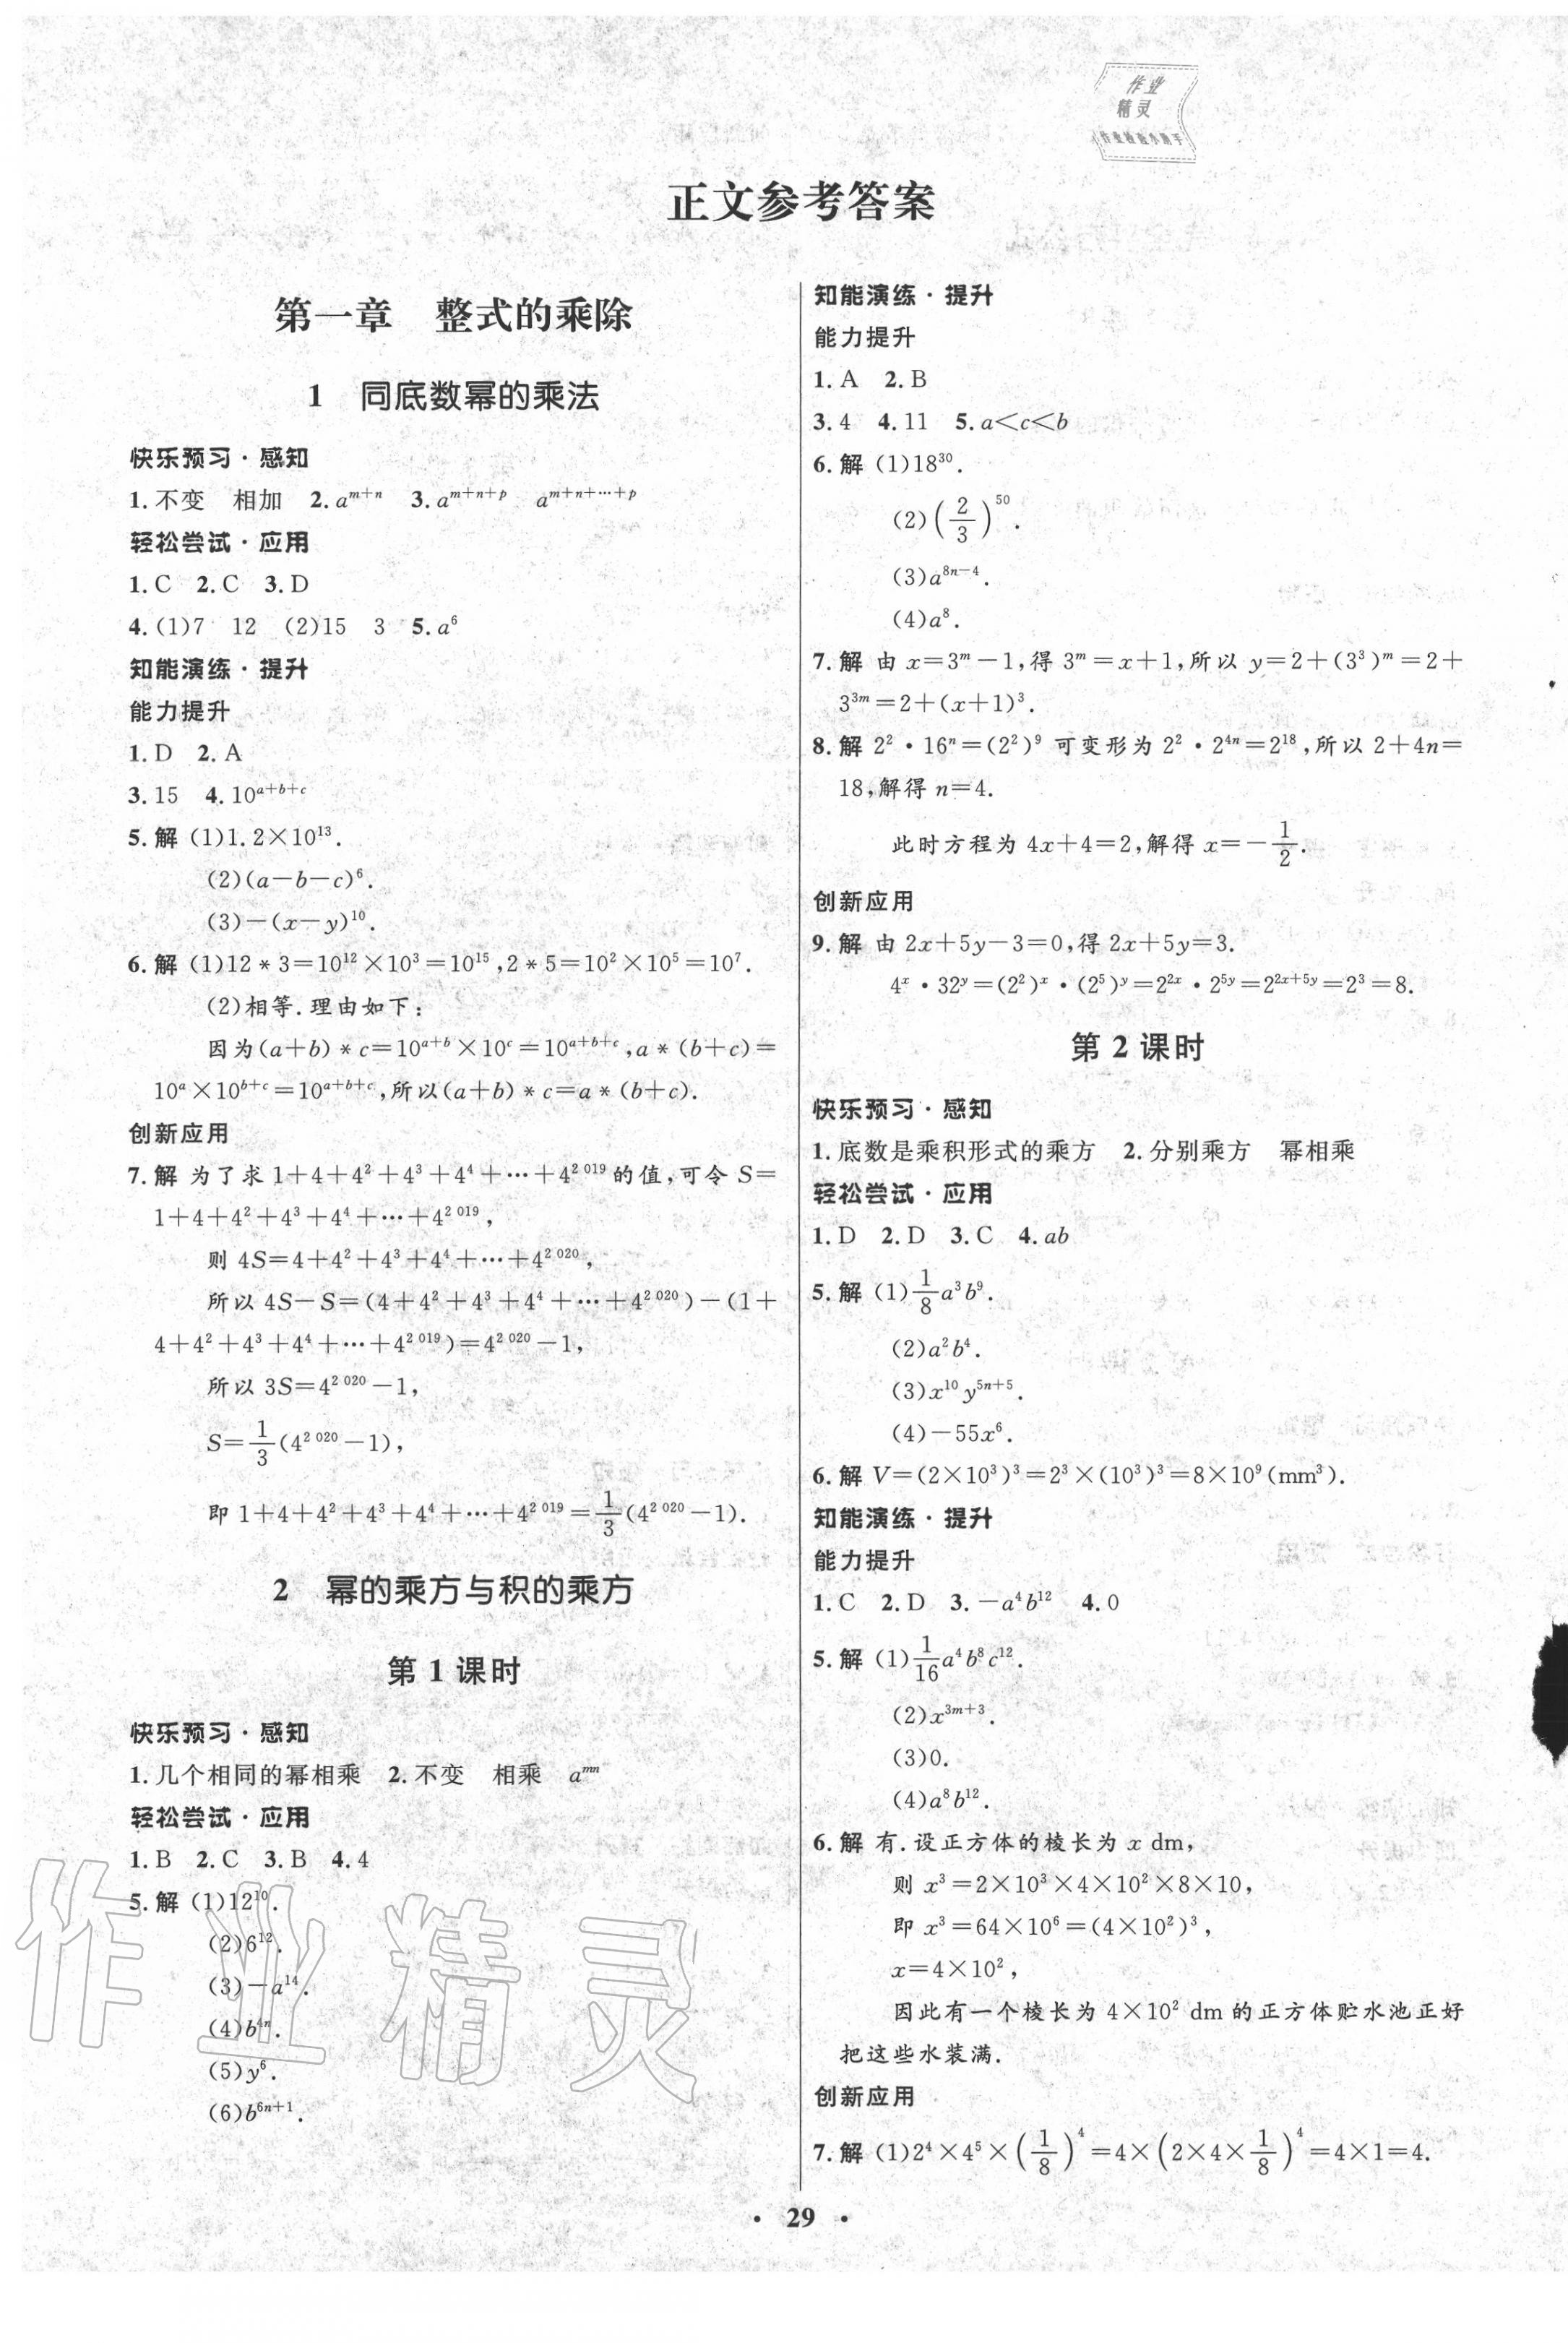 作业
精灵
作业检查小助手
正文参考答案
第一章 整式的乘除
1 同底数幂的乘法
快乐预习·感知
1.不变 相加 2.a^{m+n} 3.a^{m+n+p} a^{m+n+…+p}
轻松尝试·应用
1.C 2.C 3.D
4.(1)7 12 (2)15 3 5.a^6
知能演练·提升
能力提升
1.D 2.A
3.15 4.10^{a+b+c}
5.解 (1)1.2×10^{13}.
(2)(a-b-c)^6.
(3)-(x-y)^{10}.
6.解 (1)12*3=10^{12}×10^3=10^{15},2*5=10^2×10^5=10^7.
(2)相等.理由如下:
因为(a+b)*c=10^{a+b}×10^c=10^{a+b+c},a*(b+c)=
10^a×10^{b+c}=10^{a+b+c},所以(a+b)*c=a*(b+c).
创新应用
7.解 为了求 1+4+4^2+4^3+4^4+…+4^{2 019}的值,可令 S=
1+4+4^2+4^3+4^4+…+4^{2 019},
则 4S=4+4^2+4^3+4^4+…+4^{2 020},
所以 4S-S=(4+4^2+4^3+4^4+…+4^{2 020})-(1+
4+4^2+4^3+4^4+…+4^{2 019})=4^{2 020}-1,
所以 3S=4^{2 020}-1,
S=\frac{1}{3}(4^{2 020}-1),
即 1+4+4^2+4^3+4^4+…+4^{2 019}=\frac{1}{3}(4^{2 020}-1).
2 幂的乘方与积的乘方
第 1 课时
快乐预习·感知
1.几个相同的幂相乘 2.不变 相乘 a^{mn}
轻松尝试·应用
1.B 2.C 3.B 4.4
5.解 (1)12^{10}.
(2)6^{12}.
(3)-a^{14}.
(4)b^{4n}.
(5)y^6.
(6)b^{6n+1}.
作业精灵
知能演练·提升
能力提升
1.A 2.B
3.4 4.11 5.a<c<b
6.解 (1)18^{30}.
(2)(\frac{2}{3})^{50}.
(3)a^{8n-4}.
(4)a^8.
7.解 由 x=3^m-1,得 3^m=x+1,所以 y=2+(3^3)^m=2+
3^{3m}=2+(x+1)^3.
8.解 2^2·16^n=(2^2)^9 可变形为 2^2·2^{4n}=2^{18},所以 2+4n=
18,解得 n=4.
此时方程为 4x+4=2,解得 x=-\frac{1}{2}.
创新应用
9.解 由 2x+5y-3=0,得 2x+5y=3.
4^x·32^y=(2^2)^x·(2^5)^y=2^{2x}·2^{5y}=2^{2x+5y}=2^3=8.
第 2 课时
快乐预习·感知
1.底数是乘积形式的乘方 2.分别乘方 幂相乘
轻松尝试·应用
1.D 2.D 3.C 4.ab
5.解 (1)\frac{1}{8}a^3b^9.
(2)a^2b^4.
(3)x^{10}y^{5n+5}.
(4)-55x^6.
6.解 V=(2×10^3)^3=2^3×(10^3)^3=8×10^9(mm^3).
知能演练·提升
能力提升
1.C 2.D 3.-a^4b^{12} 4.0
5.解 (1)\frac{1}{16}a^4b^8c^{12}.
(2)x^{3m+3}.
(3)0.
(4)a^8b^{12}.
6.解 有.设正方体的棱长为 x dm,
则 x^3=2×10^3×4×10^2×8×10,
即 x^3=64×10^6=(4×10^2)^3,
x=4×10^2,
因此有一个棱长为 4×10^2 dm 的正方体贮水池正好
把这些水装满.
创新应用
7.解 (1)2^4×4^5×(\frac{1}{8})^4=4×(2×4×\frac{1}{8})^4=4×1=4.
· 29 ·